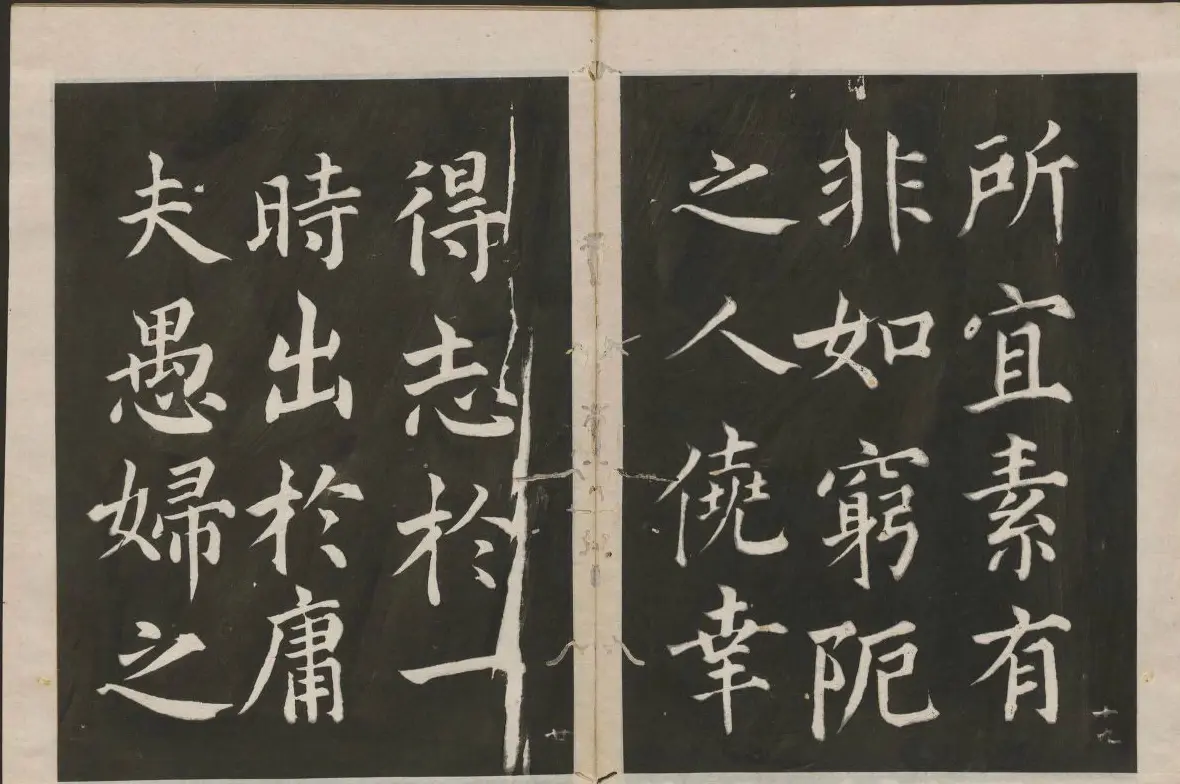 所宜素有
非如窮阨
之人僥幸
十九
得志於一
時出於庸
夫愚婦之
廿